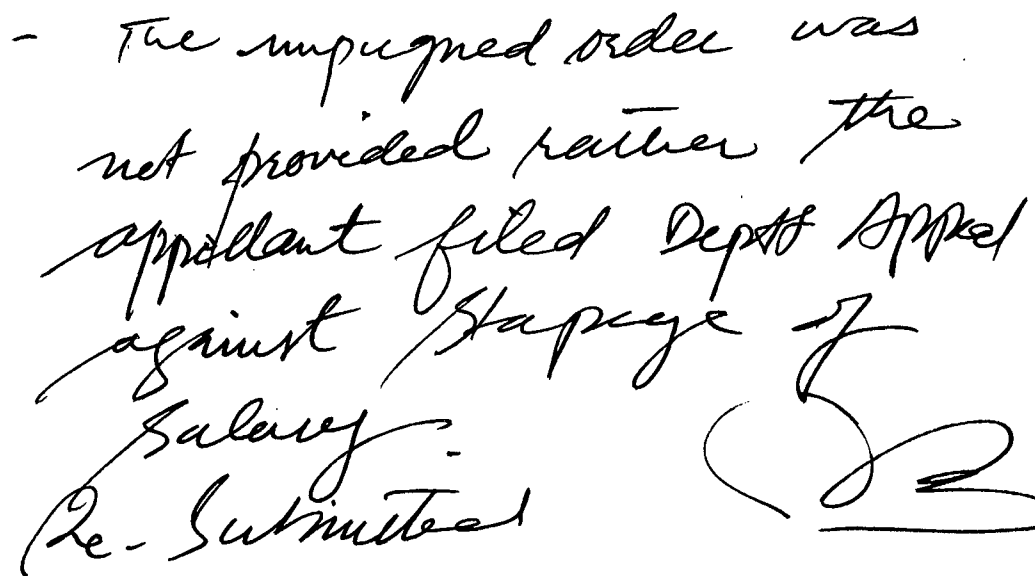 - The impugned order was
not provided rather the
appellant filed Deptt Appeal
against stapage of
salary.
Re-Submitted